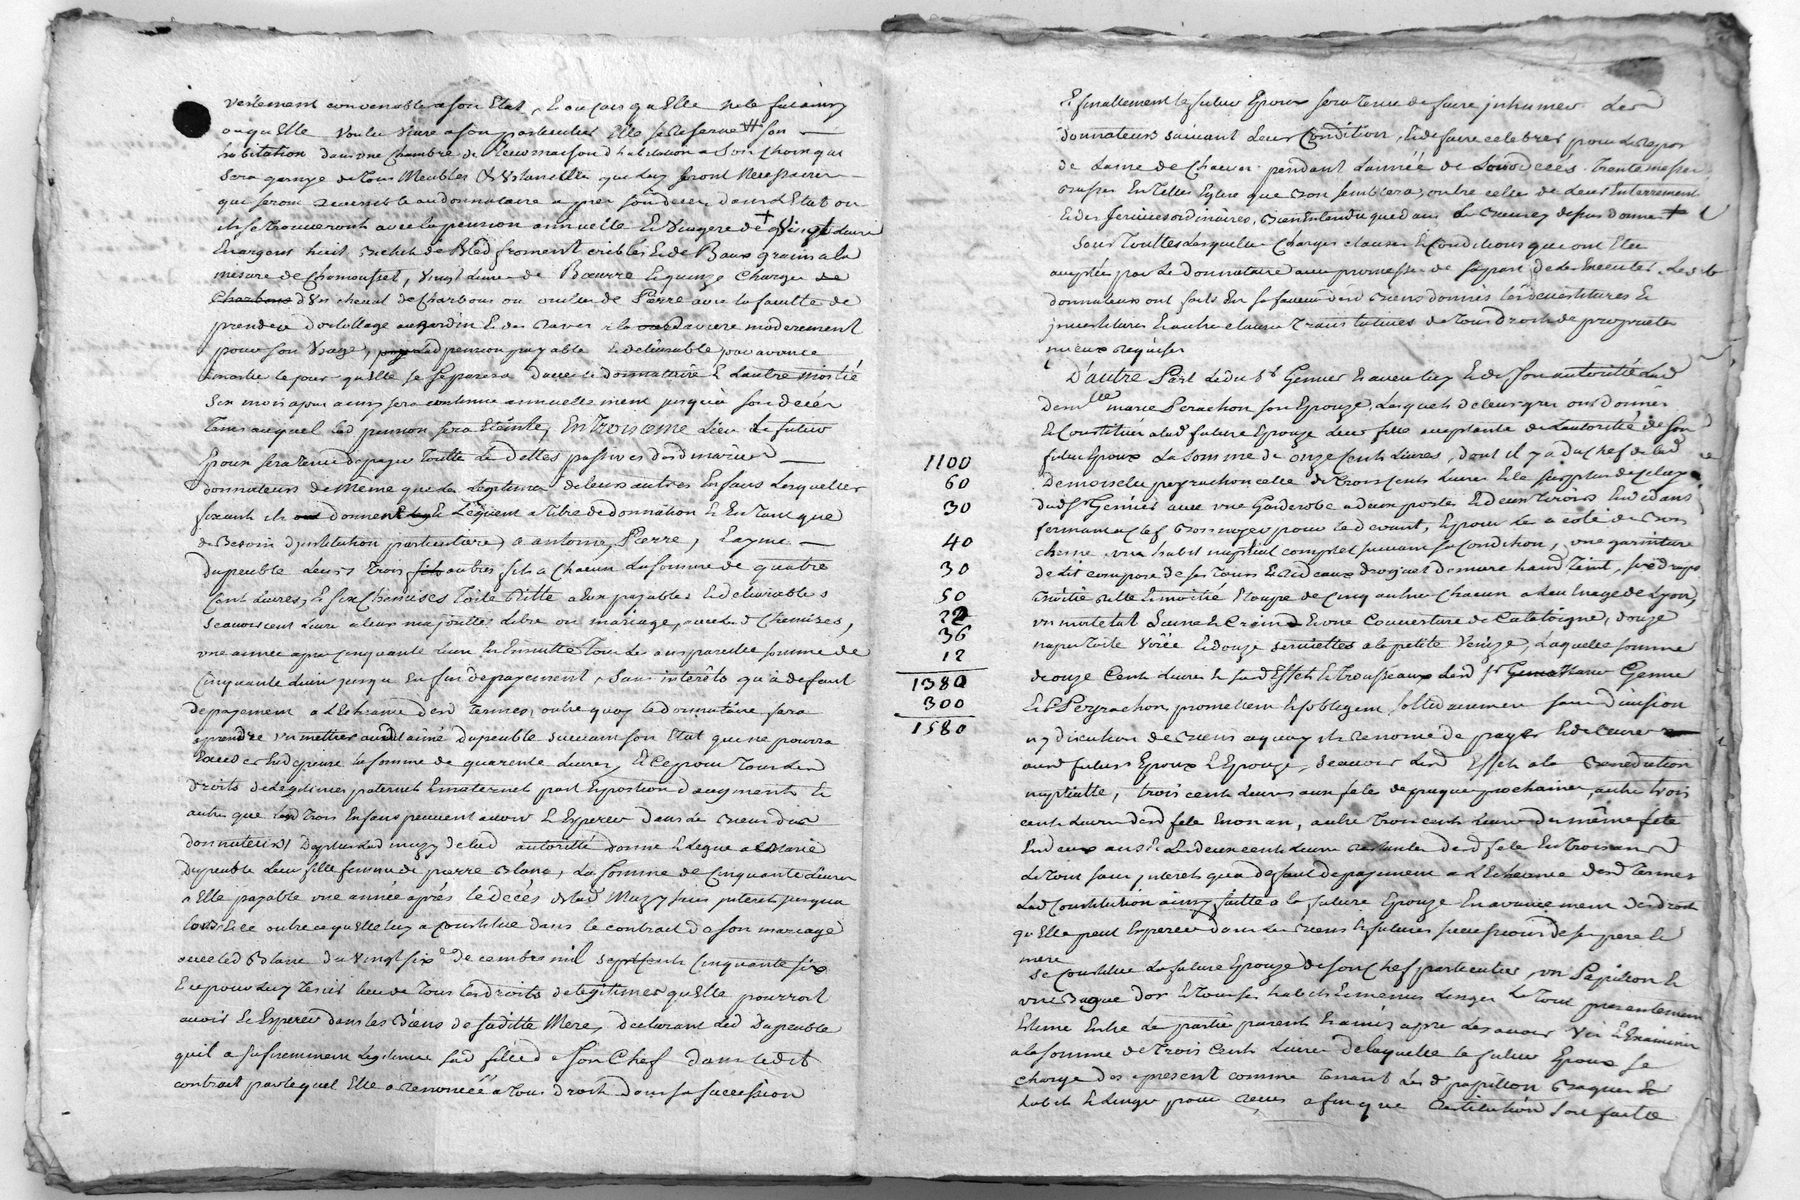 vertement convenable a son Etat, Et au cas qu'Elle ne le fut ainsy
ou qu'Elle voulu vivre a son particulier Elle se Reserve # son
habitation dans une chambre de leur maison d'habitation a son choix qui
sera garnye de tous Meubles & Ustancilles qui luy seront Necessaires
qui seront reversible au donnataire apres son deces dans l'Etat ou
ils se trouveront avec la pension annuelle Et Viagere de + Vingt Livres
En argent huit Bichets de Bled froment cribles Et de Baux grains a la
mesure de Chomousset, vingt Livres de Bœurre Et quinze Charges de
Charbons d'un cheval de charbons ou millier de Pierre avec la faculté de
prendre d'ortollage au jardin Et des Raves a la raviere moderement
pour son Usage, lad pension payable Et delivrable par avance
moitie le jour qu'Elle se separera d'avec le donnataire Et L'autre moitié
six mois apres ainsy sera continue annuellement jusqu'a son decés
tems auquel lad pension sera Eteinte, En troisieme Lieu Le futur
Epoux sera tenu de payer toutte Les Dettes passives desd mariés
donnateurs de Meme que Les Legitimes de leurs autres Enfans Lesquelles
fixant ils donnent Et Leguent a titre de donnation Et En tant que
de Besoin d'institution particuliere, a antoine, Pierre, Eayme
Dupeuble Leurs trois autres fils a Chacun La somme de quatre
Cent Livres, Et six Chemises toile Ritte a Eux payables Et delivrables
Scavoir cent Livres a leur majorité Libre ou mariage, avec Lesd Chemises,
une année apres cinquante Livres Et Ensuitte tous Les ans pareille somme de
Cinquante Livres jusqu'a En fin de payement, Sans interêts qu'a defaut
de payement a L'Echeance desd termes, outre quoy le donnataire fera
aprendre un mettier aud aimé Dupeuble suivant son Etat qui ne pourra
Exceder En depense la somme de quarente Livres, Et Ce pour tous Les
droits de Legitimes paternels Et maternels part Et portion d'augments Et
autres que lesd trois Enfans peuvent avoir Et Esperer dans Les Biens desd
donnateurs, De plus Lad muzy de lad autoritté donne Et Legue a Marie
Dupeuble Leur fille femme de pierre Blanc, La Somme de Cinquante Livres
a Elle payable une année après le decés de lad Muzy sans interets jusqu'a
lors Et ce outre ce qu'Elle luy a Constitué dans le contrat de son mariage
avec led Blanc du vingt six.e decembre mil sept cents cinquante six
Et ce pour Luy tenir lieu de tous Les droits de legitimes qu'Elle pourroit
avoir Et Esperer dans les Biens de saditte Mere, declarant Led Dupeuble
qu'il a sufisemment Legitimé sad fille de son Chef dans ledit
contrait par lequel Elle a renoncée a tous droits dans sa succession
Et finallement le futur Epoux sera tenu de faire inhumer Les
donnateurs suivant Leurs Condition, Et de faire celebrer pour Le repos
de L'ame de Chacun pendant L'année de Leurs decés trente messes
basses En telles Eglise que Bon semblera, outre celles de Leurs Enterrement
Et des services ordinaires, Bien Entendu que dans Les Biens cy dessus donnés +
Sous touttes Lesquelles Charges clauses Et Conditions qui ont Eté
acceptées par Le donnataire avec promesse de sa part de Les Executer, Lesd
donnateurs ont faits En sa faveur desd Biens donnés les devestitures Et
jnvestitures Et autres clauses translatives de tous droits de proprieté
mieux requises
D'autre Part Ledit S.r Genier Et avec luy Et de son autorité Lad
dem.lle marie Perachon son Epouze, Lesquels de leurs gres ont donné
Et Constitué a lad future Epouze Leur fille acceptante de L'autorité de son
futur Epoux La Somme de onze Cents Livres, dont il y a du chef de lad
Demoiselle peyrachon celle de trois Cents Livres Et le surplus de celuy
dud S.r Génier avec une Garderobe a deux portes Et deux tiroirs Et dedans
fermant a clef Bois noyer pour Le devant, Et pour les a coté de Bois
chesne, un habit nuptial complet suivant sa condition, une garniture
de Lit composé de ses tours Et Rideaux droguet demure hand teint, six draps
moitié Ritte Et moitié Etoupe de cinq aulnes chacun a L'aulnage de Lyon,
un matelat Laine Et Crain Et une Couverture de Catelogne, douze
napes toile virée Et douze serviettes a la petite Venize, Laquelle somme
de onze Cents Livres Et susd Effets Et trousseaux Lesd S.r Genier
Et Peyrachon promettent Et s'obligent sollidairement sans division
ny discution de Biens a quoy ils renoncé de payer Et delivrer
aux futurs Epoux Et Epouze, Scavoir Lesd Effets a la Benediction
nuptialle, trois cents Livres aux fete de paques prochaines, autre trois
cents Livres desd fete En un an, autre trois cents Livres du même fete
En deux ans Et Les deux cents Livres restantes desd fete En trois ans
Le tout sans jnterets qu'a deffaut de payement a L'Echeance desd termes
Lad Constitution ainsy faitte a la future Epouze En avancement des droits
qu'Elle peut Esperer dans Les Biens Et futures successions de ses pere Et
mere
Se constitue La future Epouze de son Chef particulier, un Papillon Et
une Bague d'or Et tous ses habits Et menus Linges Le tout presentement
Estimé Entre Les parties parents Et amis apres Les avoir Vu Et Examiné
a la somme de trois Cents Livres de laquelle le futur Epoux se
charge des a present comme tenant Lesd papillon Bague Et
habits Et Linges pour reçus afin que Restitution soit faitte
1100
60
30
40
30
50
22
36
12
1380
300
1580